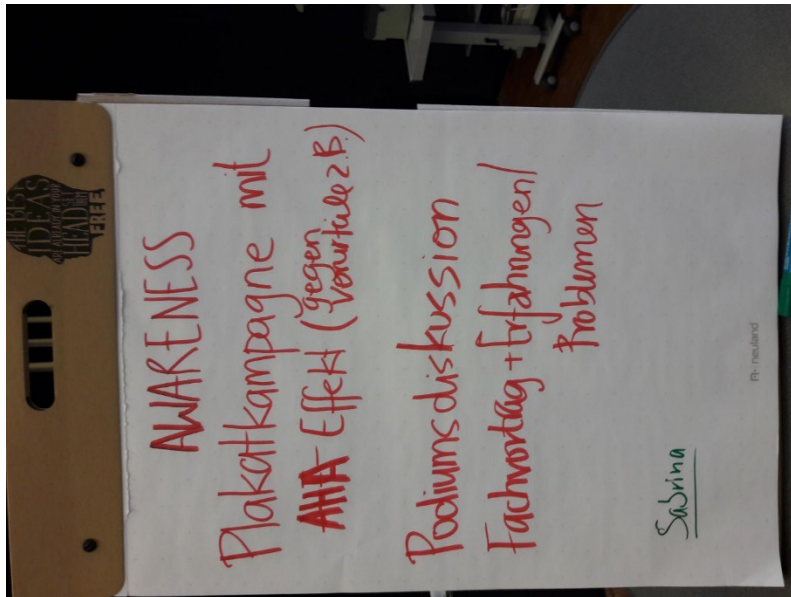 THE BEST
IDEAS
HEAD
FREE.
AWARENESS
Plakatkampagne mit
AHA-Effekt (gegen
Vorurteile z.B.)
Podiumsdiskussion
Fachvortrag + Erfahrungen/
Problemen
Sabrina
neuland